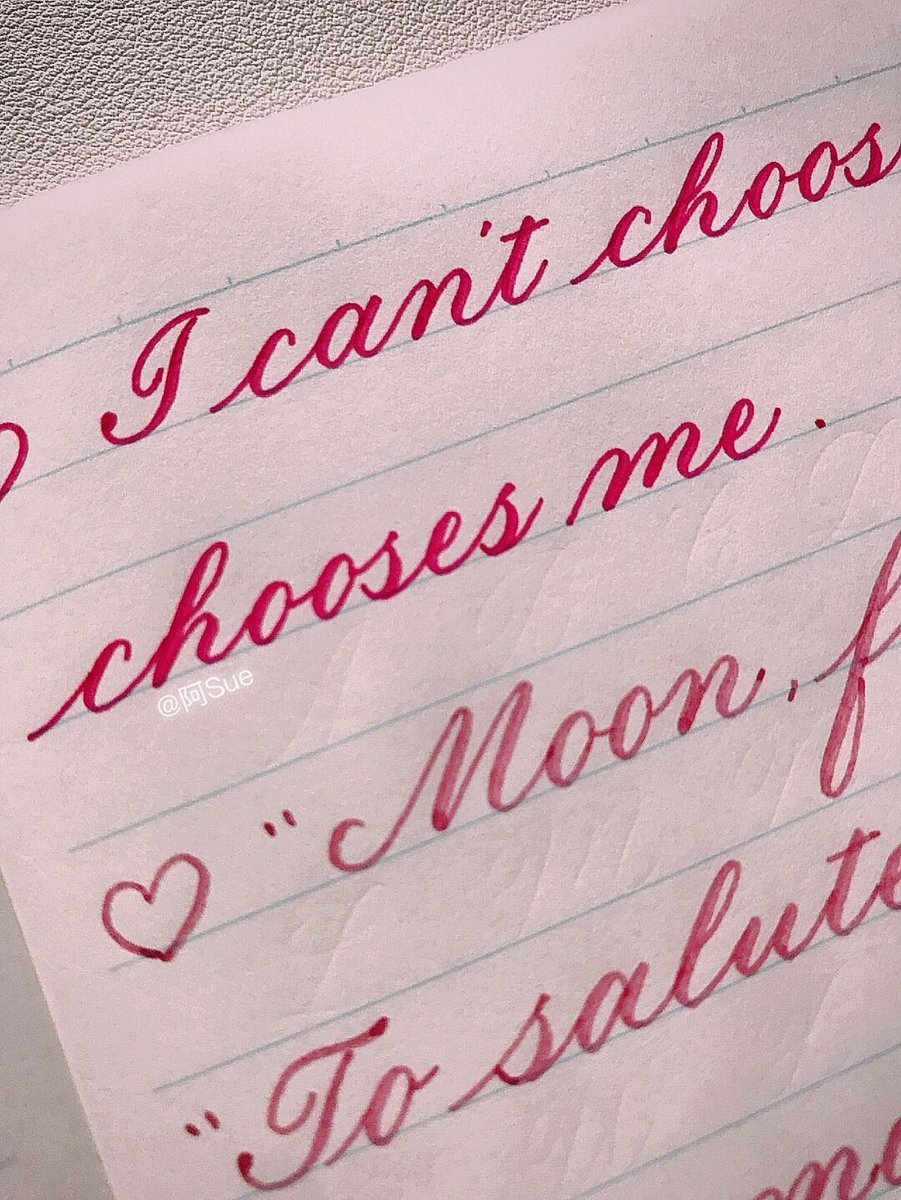 ♡ I can't choos
chooses me.
@阿Sue
♡ "Moon, f
"To salute